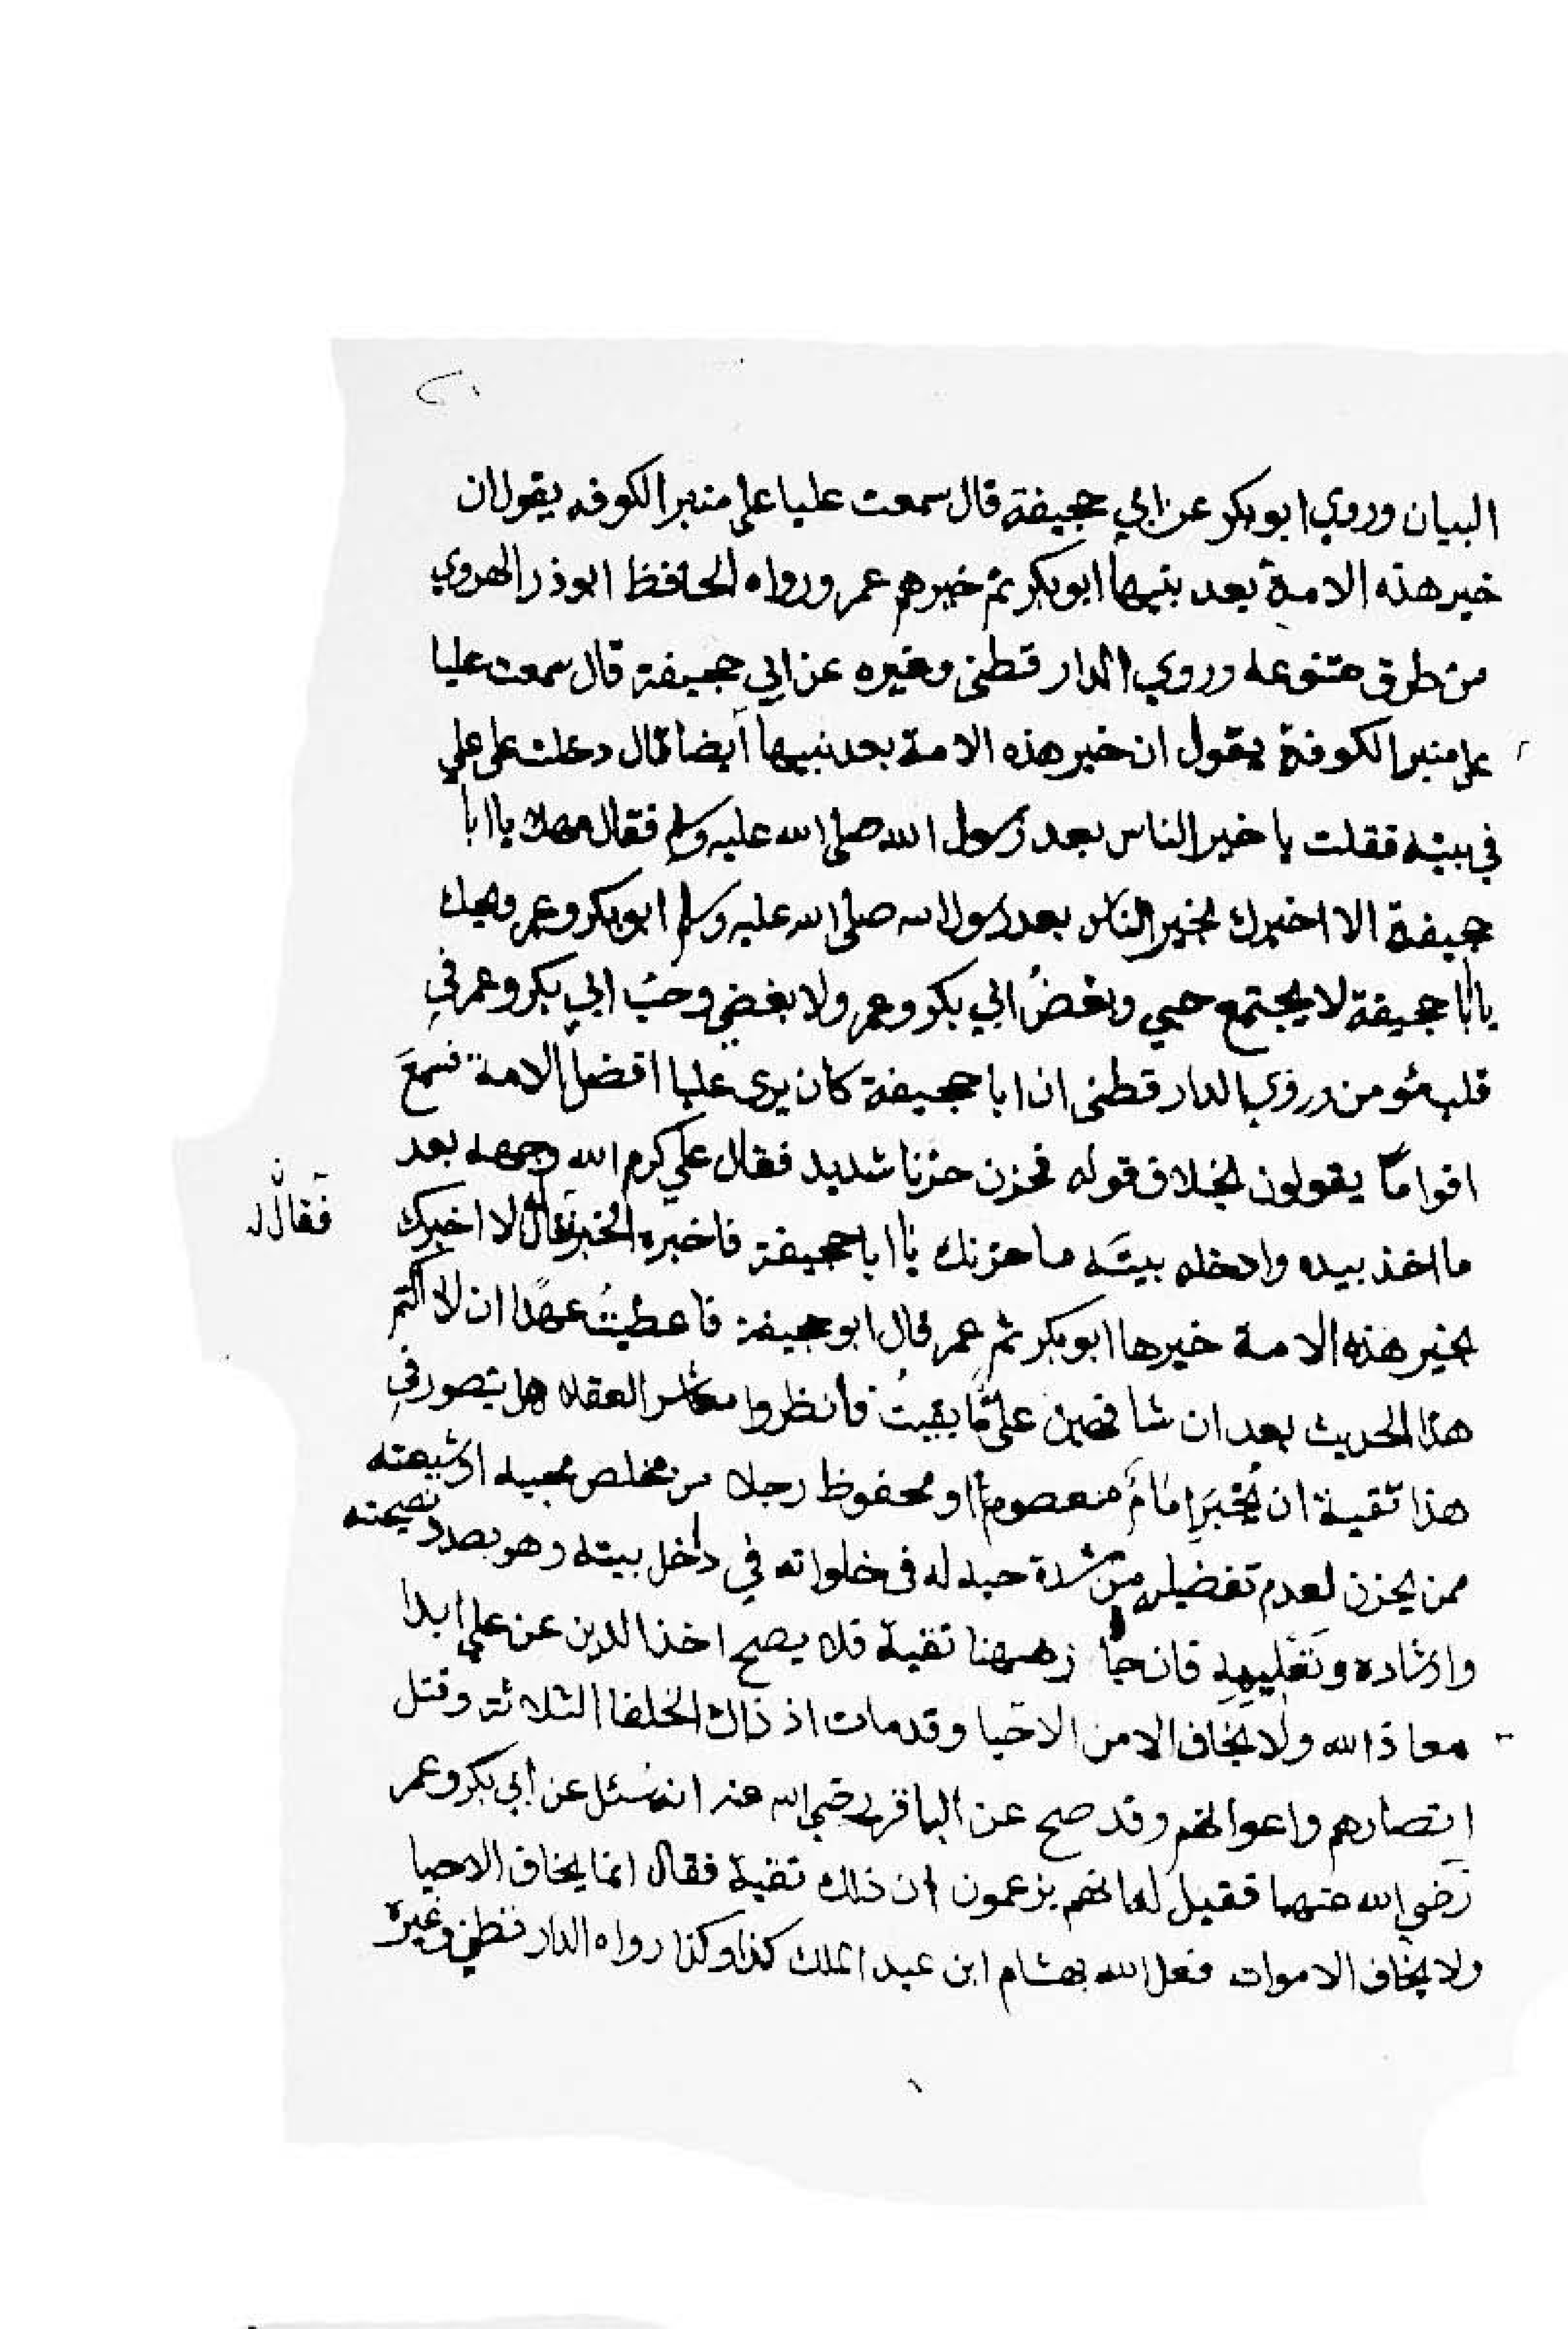 البيان وروي ابو بكر عن ابي حجيفة قال سمعت عليا على منبر الكوفه يقول ان
خير هذه الامة بعد نبيها ابو بكر ثم خيرهم عمر ورواه الحافظ ابو ذر الهروي
من طرق متنوعه وروي الدار قطني وغيره عن ابي جحيفة قال سمعت عليا
على منبر الكوفة يقول ان خير هذه الامة بعد نبيها أيضا قال دخلت على علي
في بيته فقلت يا خير الناس بعد رسول الله صلى الله عليه وسلم فقال مهلا يا ابا
جحيفة الا اخبرك بخير الناس بعد رسول الله صلى الله عليه وسلم ابو بكر وعمر ويحك
يا أبا جحيفة لا يجتمع حبي وبغض ابي بكر وعمر ولا بغضي وحب ابي بكر وعمر في
قلب مئومن وروي الدار قطني ان ابا جحيفة كان يرى عليا افضل الامة فسمع
اقواما يقولون بخلاف قوله فحزن حزنا شديد فقال علي كرم الله وجهه بعد
ما اخذ بيده وادخله بيته ما حزنك يا ابا جحيفة فاخبره الخبر فقال الا اخبرك
فقال له
بخير هذه الامة خيرها ابو بكر ثم عمر قال ابو جحيفة فاعطيتُ عهدًا ان لا اكتم
هذا الحديث بعد ان شافهني علي ما بقيتُ فأنظروا معاشر العقلا هل يتصور في
هذا تقية ان يُخبر إمام معصوم او محفوظ رجلا من مخلص محبيه او شيعته
ممن يحزن لعدم تفضيله من شدة حبه له في خلواته في داخل بيته وهو بصدد نصيحته
وارشاده فان جاز ههنا تقية فلا يصح اخذ الدين عن علي ابدا
معاذ الله ولا يخاف الا من الاحيا وقد مات اذ ذاك الخلفا الثلاثة وقتل
انصارهم واعوانهم وقد صح عن الباقر رضي الله عنه انه سُئل عن أبي بكر وعمر
رضي الله عنهما فقيل له انهم يزعمون ان ذلك تقية فقال انما يخاف الاحيا
ولا يخاف الاموات فعل الله بهشام ابن عبد الملك كذا وكذا رواه الدار قطني وغيره